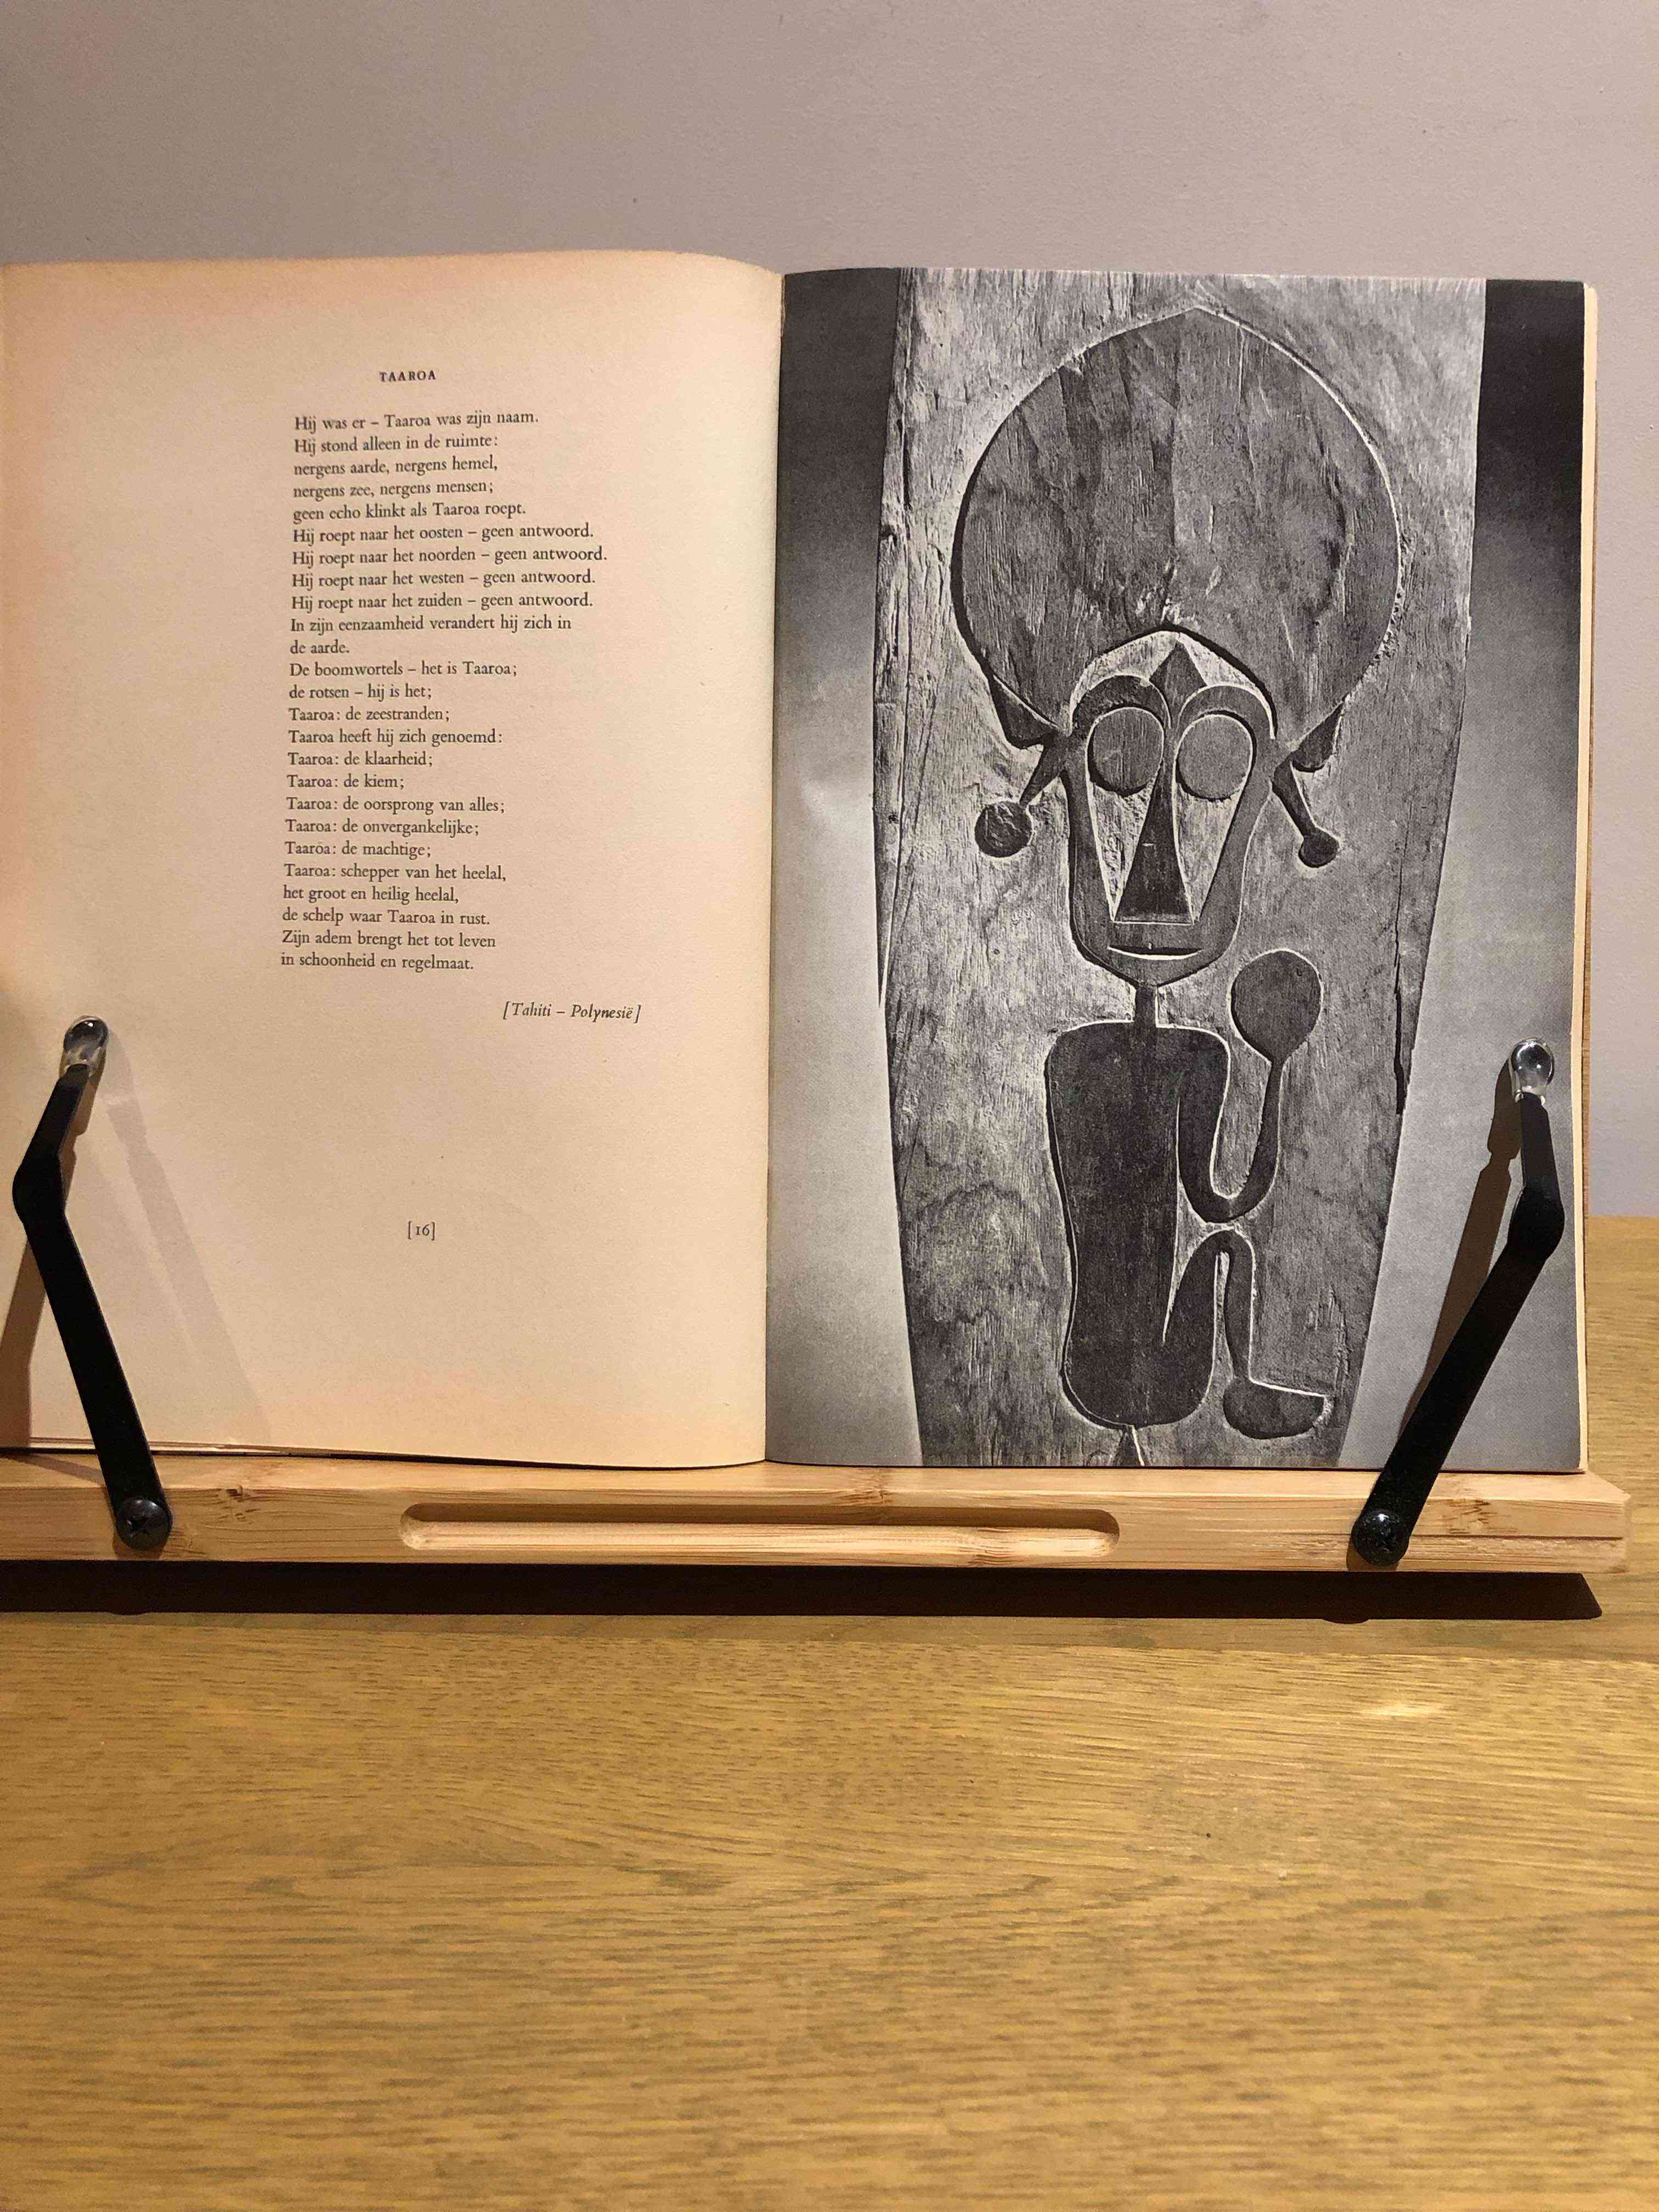 TAAROA
Hij was er – Taaroa was zijn naam.
Hij stond alleen in de ruimte:
nergens aarde, nergens hemel,
nergens zee, nergens mensen;
geen echo klinkt als Taaroa roept.
Hij roept naar het oosten – geen antwoord.
Hij roept naar het noorden – geen antwoord.
Hij roept naar het westen – geen antwoord.
Hij roept naar het zuiden – geen antwoord.
In zijn eenzaamheid verandert hij zich in
de aarde.
De boomwortels – het is Taaroa;
de rotsen – hij is het;
Taaroa: de zeestranden;
Taaroa heeft hij zich genoemd:
Taaroa: de klaarheid;
Taaroa: de kiem;
Taaroa: de oorsprong van alles;
Taaroa: de onvergankelijke;
Taaroa: de machtige;
Taaroa: schepper van het heelal,
het groot en heilig heelal,
de schelp waar Taaroa in rust.
Zijn adem brengt het tot leven
in schoonheid en regelmaat.
[Tahiti – Polynesië]
[16]